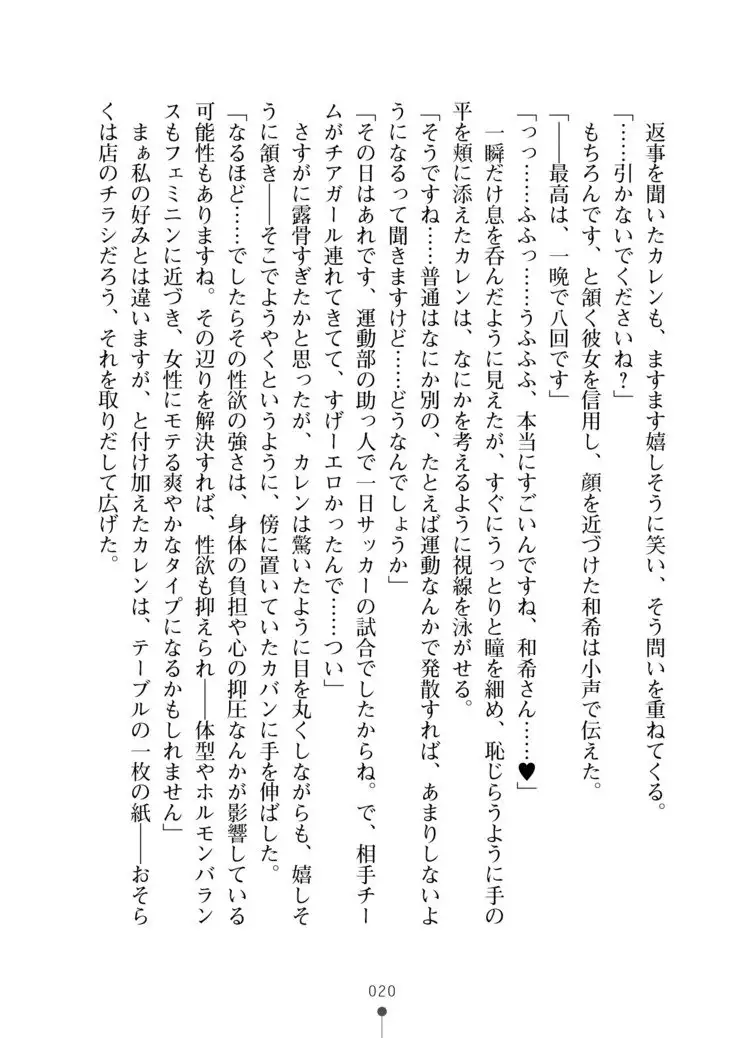 返事を聞いたカレンも、ますます嬉しそうに笑い、そう問いを重ねてくる。
「……引かないでくださいね？」
もちろんです、と頷く彼女を信用し、顔を近づけた和希は小声で伝えた。
「――最高は、一晩で八回です」
「っっ……ふふっ……うふふふ、本当にすごいんですね、和希さん……♥」
一瞬だけ息を呑んだように見えたが、すぐにうっとりと瞳を細め、恥じらうように手の
平を頬に添えたカレンは、なにかを考えるように視線を泳がせる。
「そうですね……普通はなにか別の、たとえば運動なんかで発散すれば、あまりしないよ
うになるって聞きますけど……どうなんでしょうか」
「その日はあれです、運動部の助っ人で一日サッカーの試合でしたからね。で、相手チー
ムがチアガール連れてきてて、すげーエロかったんで……つい」
さすがに露骨すぎたかと思ったが、カレンは驚いたように目を丸くしながらも、嬉しそ
うに頷き――そこでようやくというように、傍に置いていたカバンに手を伸ばした。
「なるほど……でしたらその性欲の強さは、身体の負担や心の抑圧なんかが影響している
可能性もありますね。その辺りを解決すれば、性欲も抑えられ――体型やホルモンバラン
スもフェミニンに近づき、女性にモテる爽やかなタイプになるかもしれません」
まぁ私の好みとは違いますが、と付け加えたカレンは、テーブルの一枚の紙――おそら
くは店のチラシだろう、それを取りだして広げた。
020